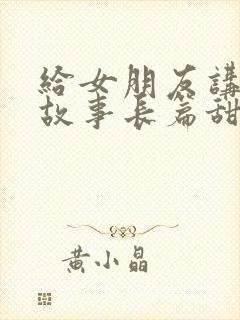 給女朋友講
故事長篇甜
黃小晶